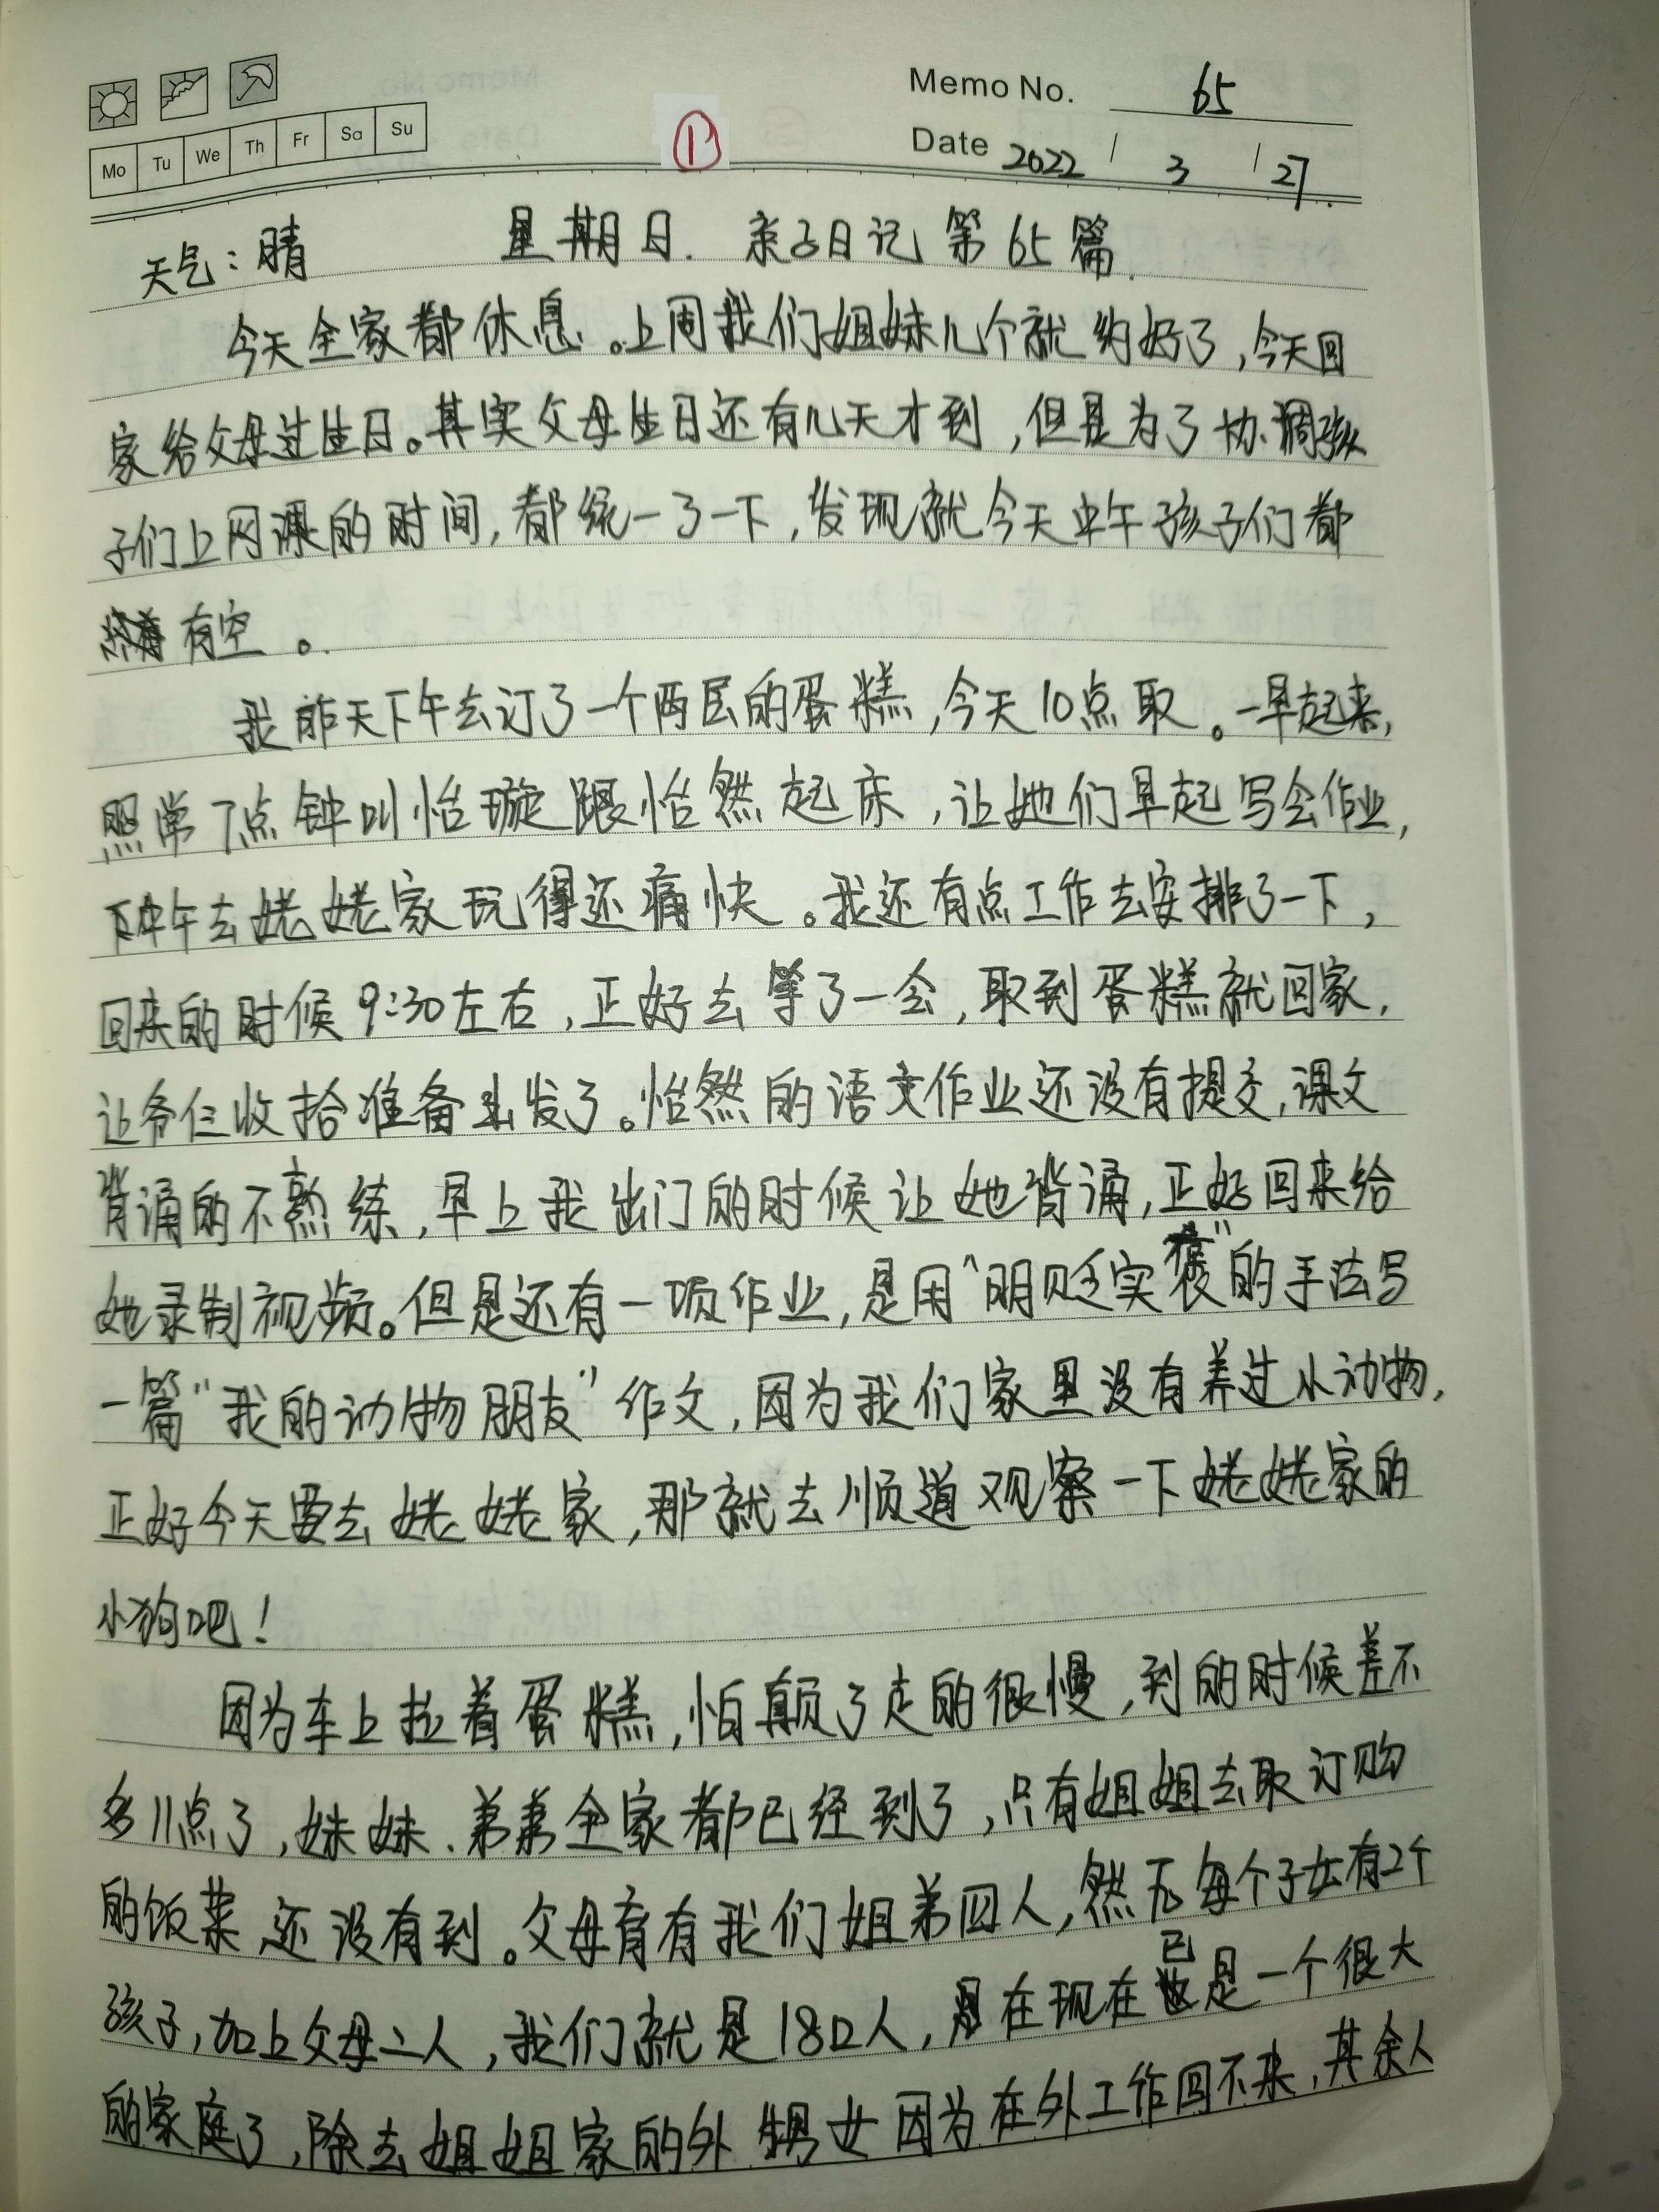 Memo No. 65
Mo Tu We Th Fr Sa Su
①
Date 2022 / 3 / 27.
天气：晴 星期日. 亲子日记 第65篇.
今天全家都休息。上周我们姐妹几个就约好了，今天回
家给父母过生日。其实父母生日还有几天才到，但是为了协调孩
子们上网课的时间，都统一了一下，发现就今天中午孩子们都
有空。
我昨天下午去订了一个两层的蛋糕，今天10点取。一早起来，
照常7点钟叫怡璇跟怡然起床，让她们早起写会作业，
中午去姥姥家玩得还痛快。我还有点工作去安排了一下，
回来的时候9:30左右，正好去等了一会，取到蛋糕就回家，
让爷仨收拾准备出发了。怡然的语文作业还没有提交，课文
背诵的不熟练，早上我出门的时候让她背诵，正好回来给
她录制视频。但是还有一项作业，是用“明贬实褒”的手法写
一篇“我的动物朋友”作文，因为我们家里没有养过小动物，
正好今天要去姥姥家，那就去顺道观察一下姥姥家的
小狗吧！
因为车上拉着蛋糕，怕颠了走的很慢，到的时候差不
多11点了，妹妹.弟弟全家都已经到了，只有姐姐去取订购
的饭菜还没有到。父母育有我们姐弟四人，然后每个子女有2个
孩子，加上父母二人，我们就是18口人，在现在已是一个很大
的家庭了，除去姐姐家的外甥女因为在外工作回不来，其余人